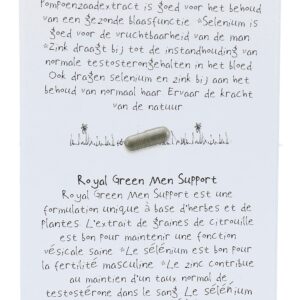 Pompoenzaadextract is goed voor het behoud
van een gezonde blaasfunctie *Selenium is
goed voor de vruchtbaarheid van de man
*Zink draagt bij tot de instandhouding van
normale testosterongehalten in het bloed
Ook dragen selenium en zink bij aan het
behoud van normaal haar Ervaar de kracht
van de natuur
Royal Green Men Support
Royal Green Men Support est une
formulation unique à base d'herbes et de
plantes L'extrait de graines de citrouille
est bon pour maintenir une fonction
vésicale saine *Le sélénium est bon pour
la fertilité masculine *Le zinc contribue
au maintien d'un taux normal de
testostérone dans le sang Le sélénium